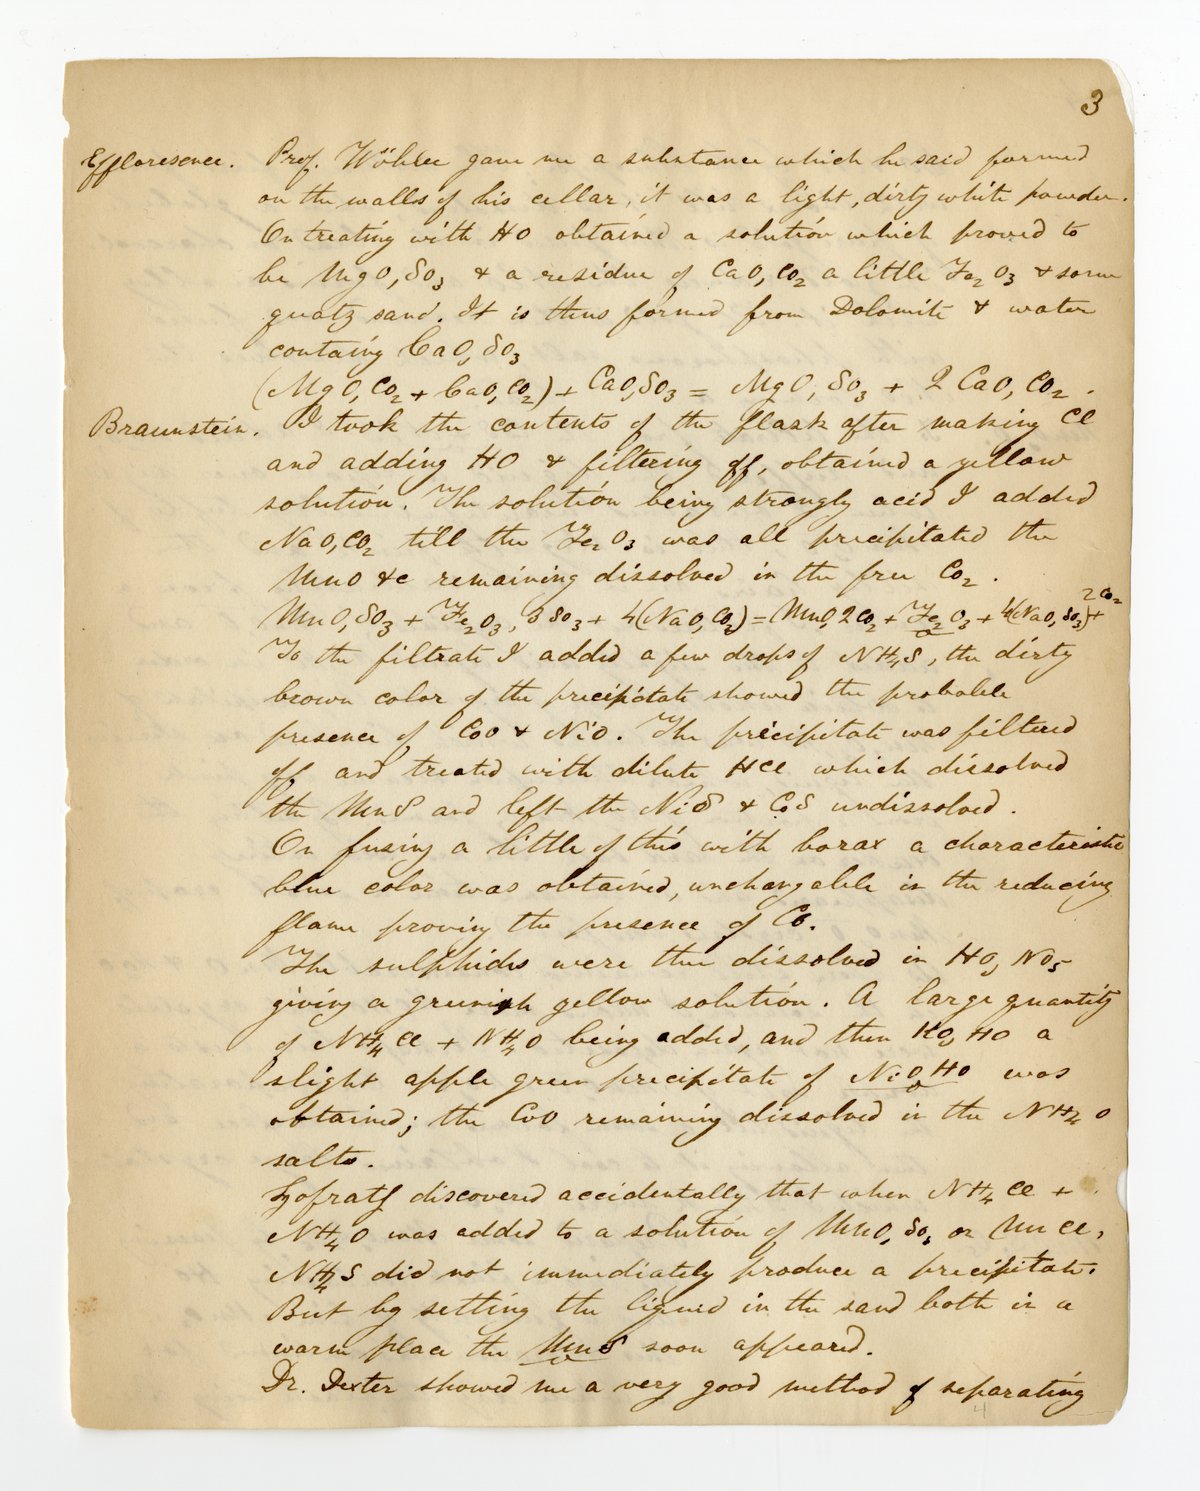 3
Effloresence. Prof. Wöhler gave me a substance which he said formed
on the walls of his cellar, it was a light, dirty white powder.
On treating with HO obtained a solution which proved to
be MgO, SO3 & a residue of CaO, CO2 a little Fe2O3 & some
quatz sand. It is thus formed from Dolomite & water
containg CaO, SO3
(MgO, CO2 + CaO, CO2) + CaO, SO3 = MgO, SO3 + 2 CaO, CO2.
Braunstein. I took the contents of the flask after making Cl
and adding HO & filtering off, obtained a yellow
solution. The solution being strongly acid I added
NaO, CO2 till the Fe2O3 was all precipitated the
MnO &c remaining dissolved in the free CO2.
MnO, SO3 + Fe2O3, 3SO3 + 4(NaO, CO2) = MnO, 2CO2 + Fe2O3 + 4(NaO, SO3) + 2CO2
To the filtrate I added a few drops of NH4S, the dirty
brown color of the precipitate showed the probable
presence of CoO & NiO. The precipitate was filtered
off and treated with dilute HCl which dissolved
the MnS and left the NiS & CoS undissolved.
On fusing a little of this with borax a characteristic
blue color was obtained, unchangable in the reducing
flame proving the presence of Co.
The sulphides were then dissolved in HO, NO5
giving a greenish yellow solution. A large quantity
of NH4Cl + NH4O being added, and then KO, HO a
slight apple green precipitate of NiO, HO was
obtained; the CoO remaining dissolved in the NH4O
salts.
Hofrath discovered accidentally that when NH4Cl +
NH4O was added to a solution of MnO, SO3 or MnCl,
NH4S did not immediately produce a precipitate.
But by setting the liquid in the sand bath in a
warm place the MnS soon appeared.
Dr. Dexter showed me a very good method of separating
4